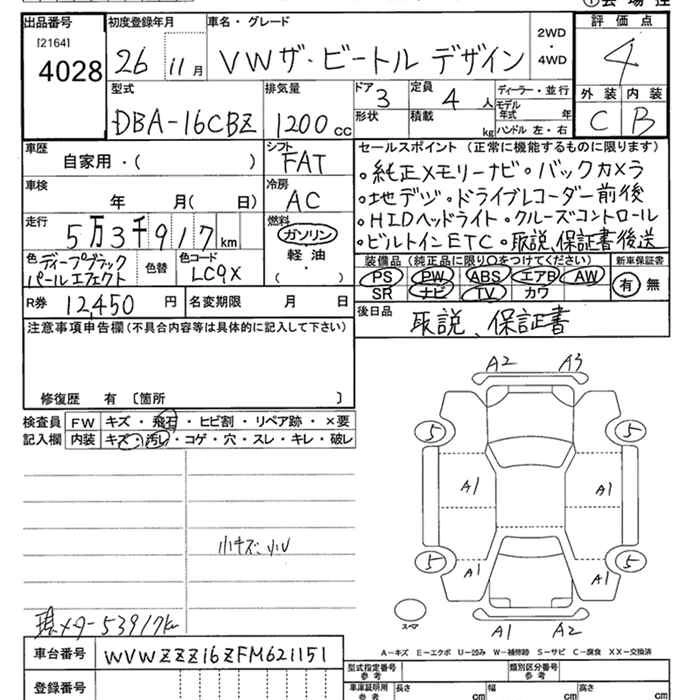 出品番号 初度登録年月 車名・グレード 評価点
[2164] 4028 26 11月 VWザ・ビートル デザイン 2WD・4WD 4
型式 排気量 ドア 3 定員 4人 ディーラー・並行 外装 内装
DBA-16CBZ 1200cc 形状 積載 kg モデル年式 年 C B
ハンドル 左・右
車歴 シフト セールスポイント (正常に機能するものに限ります)
自家用・( ) FAT 。純正メモリーナビ・バックカメラ
車検 冷房 。地デジ・ドライブレコーダー前後
年 月( 日) AC 。HIDヘッドライト・クルーズコントロール
走行 燃料 。ビルトインETC・取説、保証書後送
5万3千917km ガソリン
色 ディープブラックパールエフェクト 色替 色コード LC9X 軽油・( )
装備品 (純正品に限り○をつけてください) 新車保証書
PS PW ABS エアB AW 有 無
SR ナビ TV カワ
R券 12,450円 名変期限 月 日
後日品 取説、保証書
注意事項申告欄(不具合内容等は具体的に記入して下さい)
修復歴 有 〔箇所 〕
検査員記入欄 FW キズ・飛石・ヒビ割・リペア跡・×要
内装 キズ・汚レ・コゲ・穴・スレ・キレ・破レ
A2 A3
5 5
A1 A1
5 5
A1 A1
A1 A2
スペア
小キズ、小U
現メター53917km
A-キズ E-エクボ U-凹み W-補修跡 S-サビ C-腐食 XX-交換済
車台番号 WVWZZZ16ZFM621151
型式指定番号 参考 類別区分番号 参考
登録番号 車庫証明用 参考 長さ cm 幅 cm 高さ cm